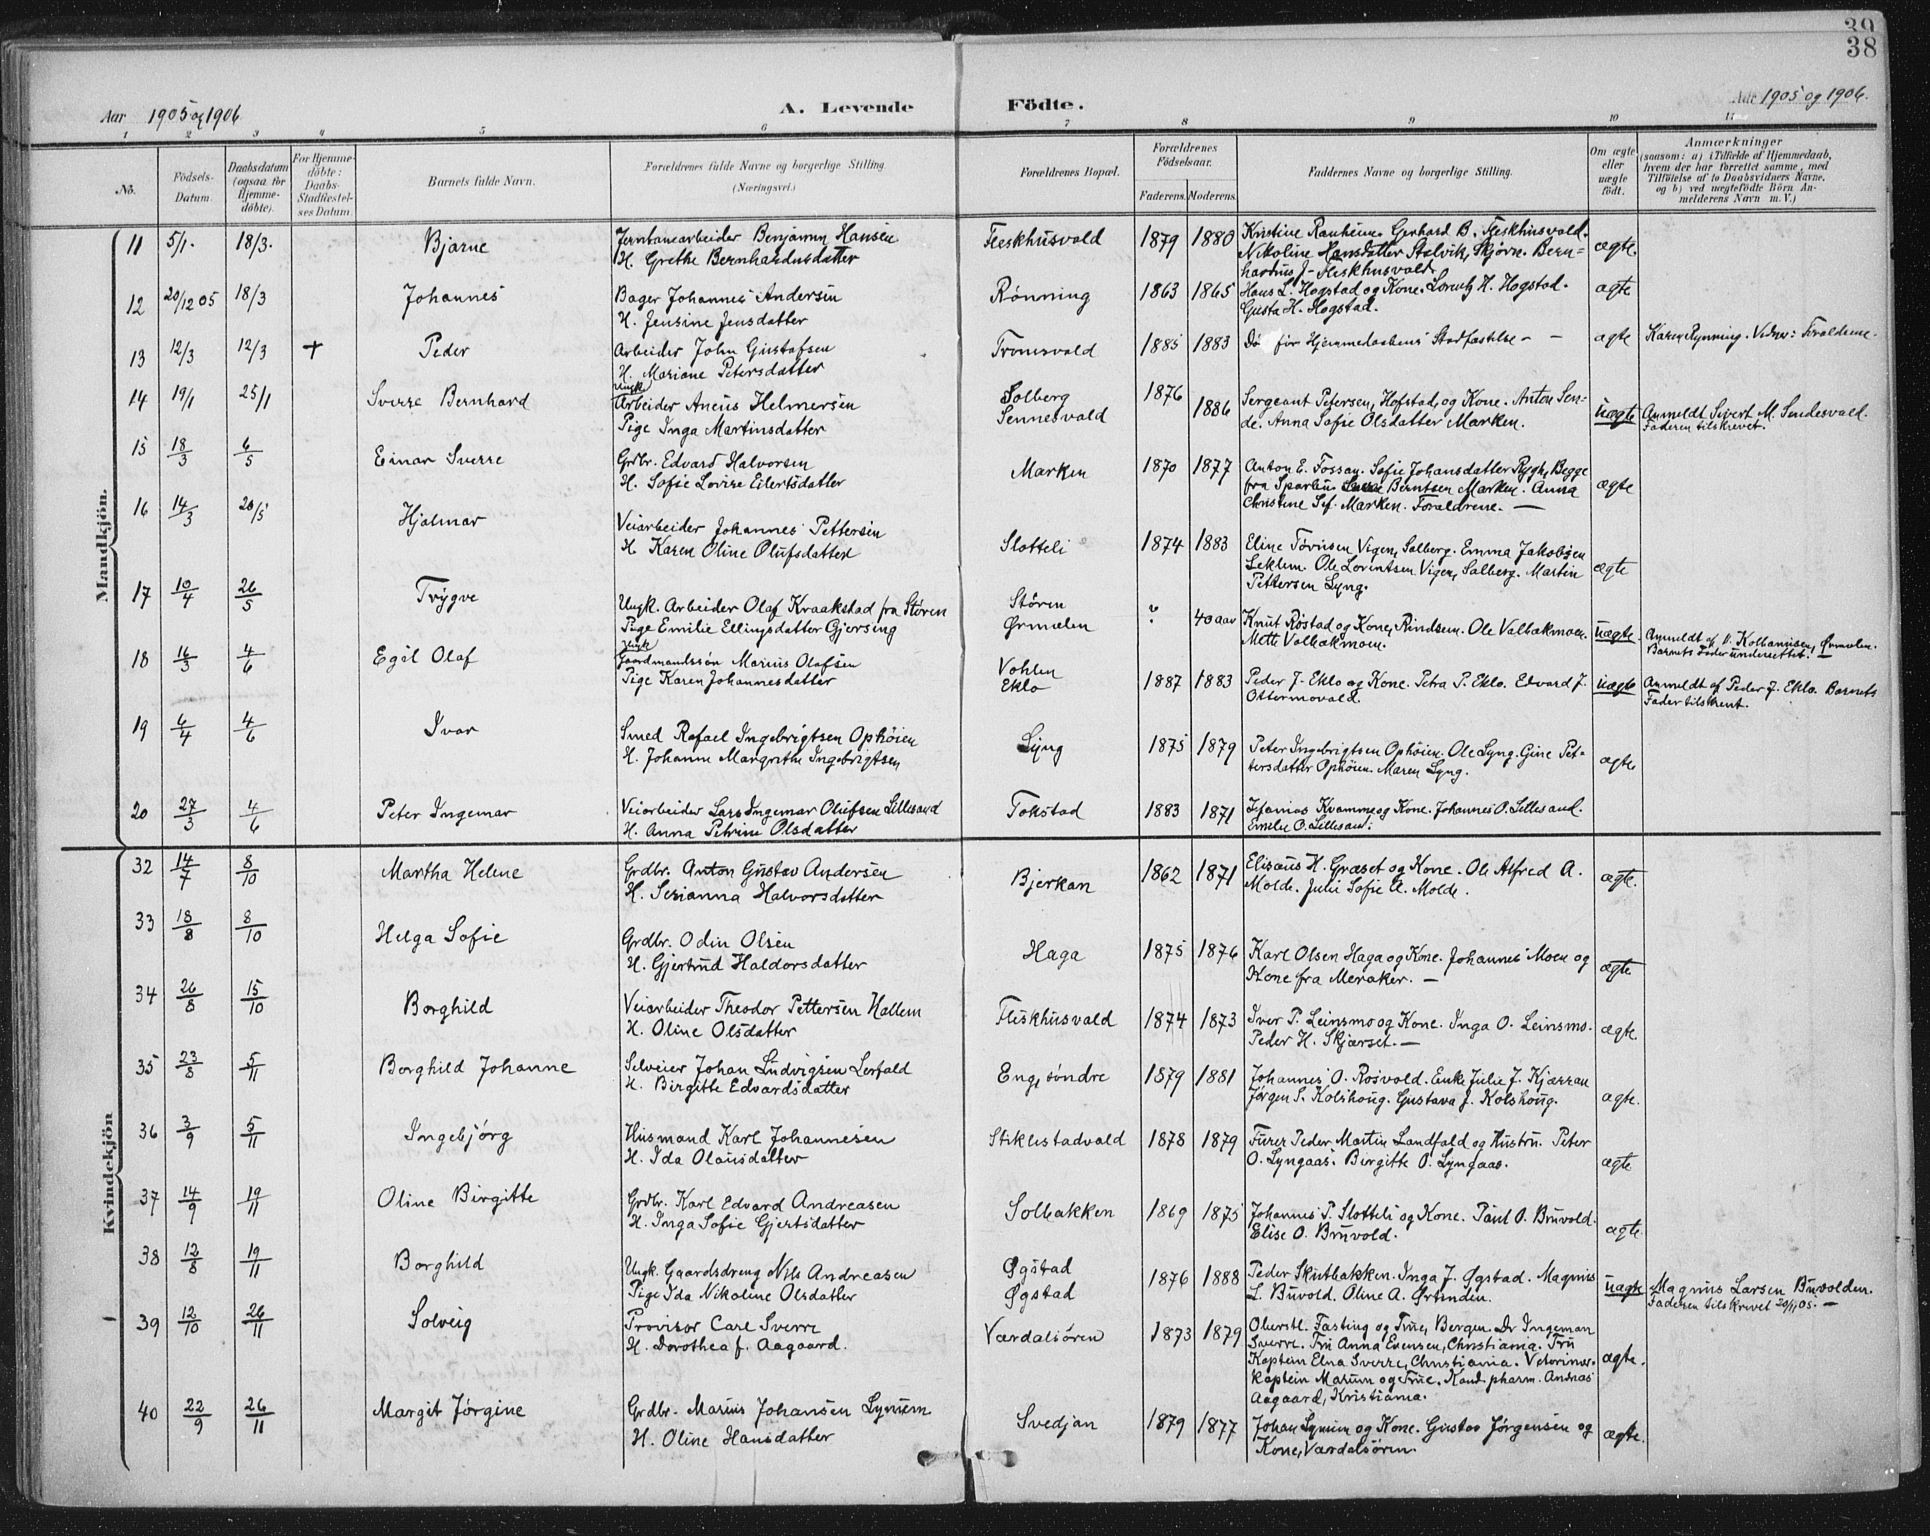 39
38
Aar 1905 og 1906
A. Levende Födte.
Aar 1905 og 1906.
1 2 3 4 5 6 7 8 9 10 11
No.
Födsels-Datum.
Daabsdatum (ogsaa for Hjemme-döbte).
For Hjemme-döbte: Daabs-Stadfæstel-ses Datum.
Barnets fulde Navn.
Forældrenes fulde Navne og borgerlige Stilling. (Næringsvei.)
Forældrenes Bopæl.
Forældrenes Födselsaar.
Faderens. Moderens.
Faddernes Navne og borgerlige Stilling.
Om ægte eller uægte födt.
Anmærkninger
(saasom: a) i Tilfælde af Hjemmedaab, hvem der har forrettet samme, med Tilföielse af to Daabsvidners Navne, og b) ved uægtefödte Börn An-melderens Navn m. V.)
Mandkjön.
11 5/1. 18/3. Bjarne Jernbanearbeider Benjamin Hansen Fleskhusvald 1879 1880 Kristine Ranheim. Gerhard B. Fleskhusvald. ægte.
H. Grethe Bernhardusdatter Nikoline Hansdatter Stalvik, Skjørn. Bern=
hardus J. Fleskhusvald.
12 20/12 05 18/3 Johannes Bager Johannes Andersen Rønning 1863 1865 Hans L. Hogstad og Kone. Lorentz H. Hogstad. ægte
H. Jensine Jensdatter Gusta H. Hogstad.
13 12/3 12/3 + Peder Arbeider John Gustafsen Tronesvald 1885 1883 Dø før Hjemmedaabens Stadfæstelse — — ægte Karen Rynning. Vidner: Forældrene.
H. Mariane Petersdatter
14 19/1 25/1 Sverre Bernhard Ungk. Arbeider Aneus Helmersen Solberg 1876 Sergeant Petersen, Hofstad, og Kone. Anton Sen= uægte Anmeldt Sivert M. Sendesvald.
Pige Inga Martinsdatter Sennesvald 1886 de. Anna Sofie Olsdatter Marken. Faderen tilskrevet.
15 18/3 6/5 Einar Sverre Grdbr. Edvard Halvorsen Marken 1870 1877 Anton E. Fossan. Sofie Johansdatter Rygh, Begge ægte
H. Sofie Lovise Eilertsdatter fra Sparbu. Berntsen Marken. Anna
Christine Sef. Marken. Forældrene. —
16 14/3 20/5 Hjalmar Veiarbeider Johannes Pettersen Slotteli 1874 1883 Eline Tørrisen Vigen, Salberg. Emma Jakobsen ægte
H. Karen Oline Olufsdatter Leklem. Ole Lorentsen Vigen, Salberg. Martin
Pettersen Lyng.
17 10/4 26/5 Trygve Ungk. Arbeider Olaf Kraakstad fra Støren Støren ? 40 aar Knut Røstad og Kone, Rindsem. Ole Valbækmoen. uægte. Anmeldt af Kolbanussen, Ørmelen.
Pige Emilie Ellingsdatter Gjersing Ørmelen Mette Valbækmoen. Barnets Fader underrettet. —
18 16/3 4/6 Egil Olaf Ungk. Gaardmandssøn Marius Olafsen Vohlen 1887 1883 Peder J. Eklo og Kone. Petra P. Eklo. Edvard J. uægte Anmeldt af Peder J. Eklo. Barnets
Pige Karen Johannesdatter Eklo Ottermovald. Fader tilskrevet.
19 6/4 4/6 Ivar Smed Rafael Ingebrigtsen Ophøien Lyng 1875 1879 Peter Ingebrigtsen Ophøien. Ole Lyng. Gine Pet= ægte
H. Johanne Margrethe Ingebrigtsen tersdatter Ophøien. Maren Lyng.
20 27/3 4/6 Peter Ingemar Veiarbeider Lars Ingemar Olufsen Lillesand Tokstad 1883 1871 Kvamme og Kone. Johannes O. Lillesand.
H. Anna Petrine Olsdatter Emilie O. Lillesand.
Kvindekjön
32 14/7 8/10 Martha Helene Grdbr. Anton Gustav Andersen Bjerkan 1862 1871 Elisæus H. Græset og Kone. Ole Alfred A. ægte.
H. Serianna Halvorsdatter Molde. Julie Sofie A. Molde.
33 18/8 8/10 Helga Sofie Grdbr. Odin Olsen Haga 1875 1876 Karl Olsen Haga og Kone. Johannes Moen og ægte
H. Gjertrud Haldorsdatter Kone fra Meraker. —
34 26/8 15/10 Borghild Veiarbeider Theodor Pettersen Hallem Fleskhusvald 1874 1873 Iver P. Leinsmo og Kone. Inga O. Leinsmo. ægte.
H. Oline Olsdatter Peder H. Skjærset. —
35 23/8 5/11 Borghild Johanne Selveier Johan Ludvigsen Lerfald Eng, søndre 1879 1881 Johannes O. Rosvold. Enke Julie J. Kjærran ægte.
H. Birgitte Edvardsdatter Jørgen S. Kolshoug. Gustava J. Kolshoug.
36 3/9 5/11 Ingebjørg Husmand Karl Johannesen Stiklestadvald 1878 1879 Furer Peder Martin Landfald og Hustru. Peter ægte
H. Ida Olausdatter O. Lyngaas. Birgitte O. Lyngaas.
37 14/9 19/11 Oline Birgitte Grdbr. Karl Edvard Andreasen Solbakken 1869 1875 Johannes P. Slotteli og Kone. Paul O. Bruvold. ægte.
H. Inga Sofie Gjertsdatter Elise O. Bruvold.
38 12/8 19/11 Borghild Ungk. Gaardsdreng Nils Andreasen Øgstad 1876 1888 Peder Skutbakken. Inga J. Øgstad. Magnus uægte Magnus Larsen Buvolden.
Pige Ida Nikoline Olsdatter Øgstad L. Buvold. Oline A. Ørtunden. Faderen tilskrevet 20/11 05. —
39 12/10 26/11 Solveig Provisor Carl Sverre Værdalsøren 1873 1879 Oberstl. Fasting og Frue, Bergen. Dr Ingeman ægte.
H. Dorothea f. Aagaard. Sverre. Fru Anna Evensen, Christiania. Fru
Kaptein Elna Sverre, Christiania. Veterinær=
kaptein Marum og Frue. Kand. pharm. Andreas
Aagaard, Kristiania.
40 22/9 26/11 Margit Jørgine Grdbr. Marius Johansen Lynum Svedjan 1879 1877 Johan Lynum og Kone. Gustav Jørgensen og ægte.
H. Oline Hansdatter Kone, Værdalsøren.